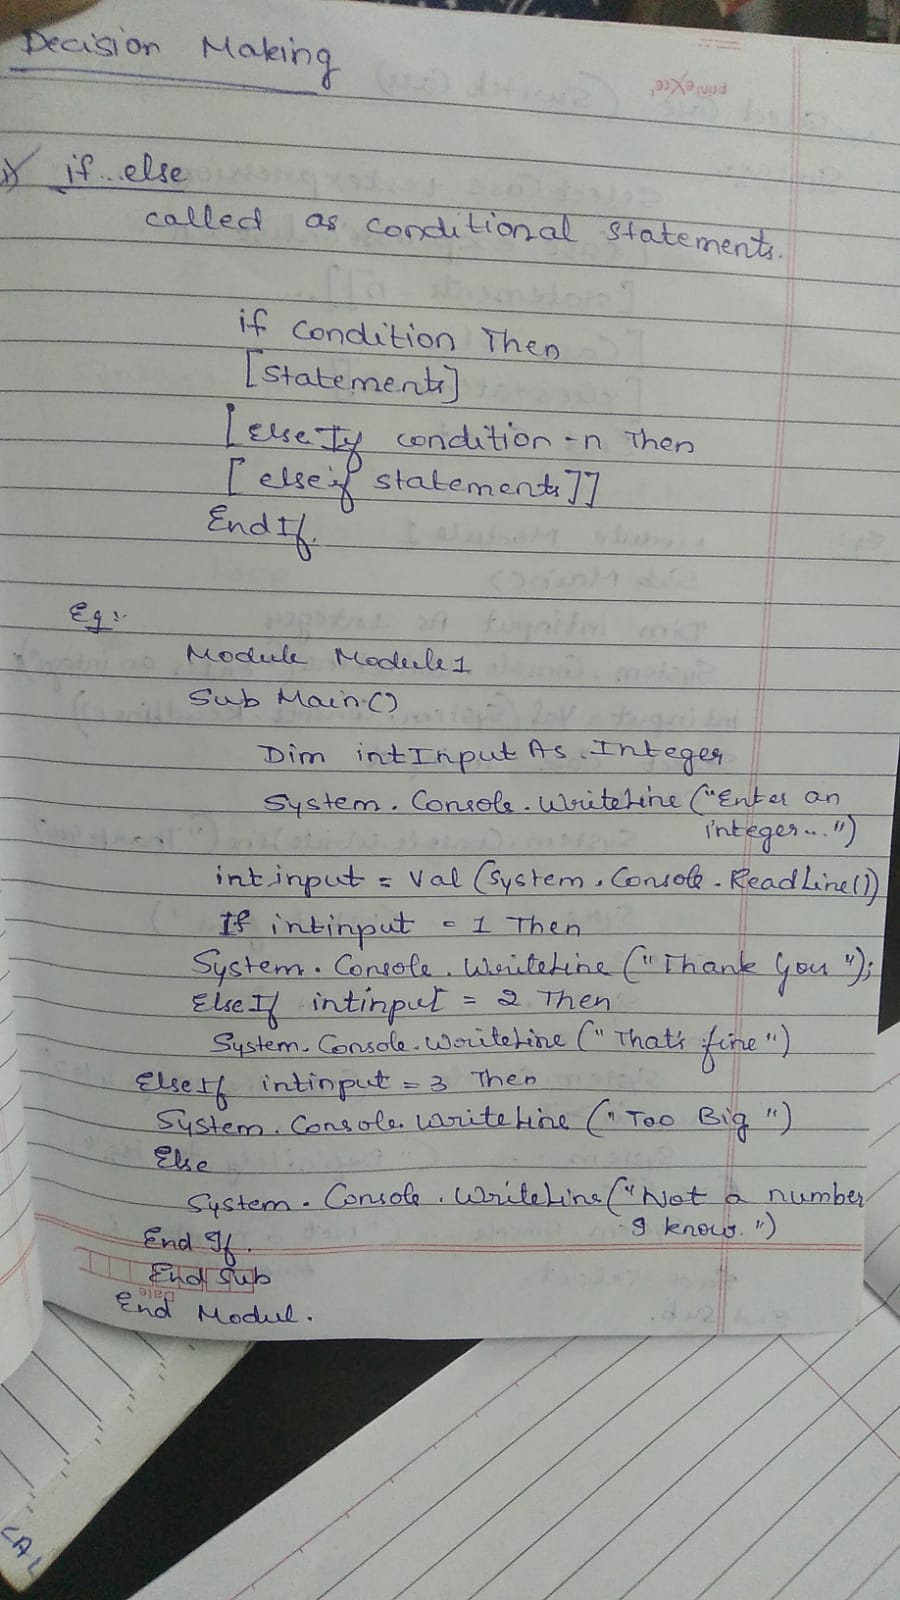 Decision Making
1) if..else
called as conditional statements.
if condition Then
[statements]
[ElseIf condition-n Then
[elseif statements]]
End If.
Eg:-
Module Module1
Sub Main()
Dim intInput As Integer
System.Console.WriteLine("Enter an
integer...")
intinput = Val(System.Console.ReadLine())
If intinput = 1 Then
System.Console.WriteLine("Thank you");
ElseIf intinput = 2 Then
System.Console.WriteLine("That's fine")
ElseIf intinput = 3 Then
System.Console.WriteLine("Too Big")
Else
System.Console.WriteLine("Not a number
I know.")
End If.
End Sub
End Modul.
Date